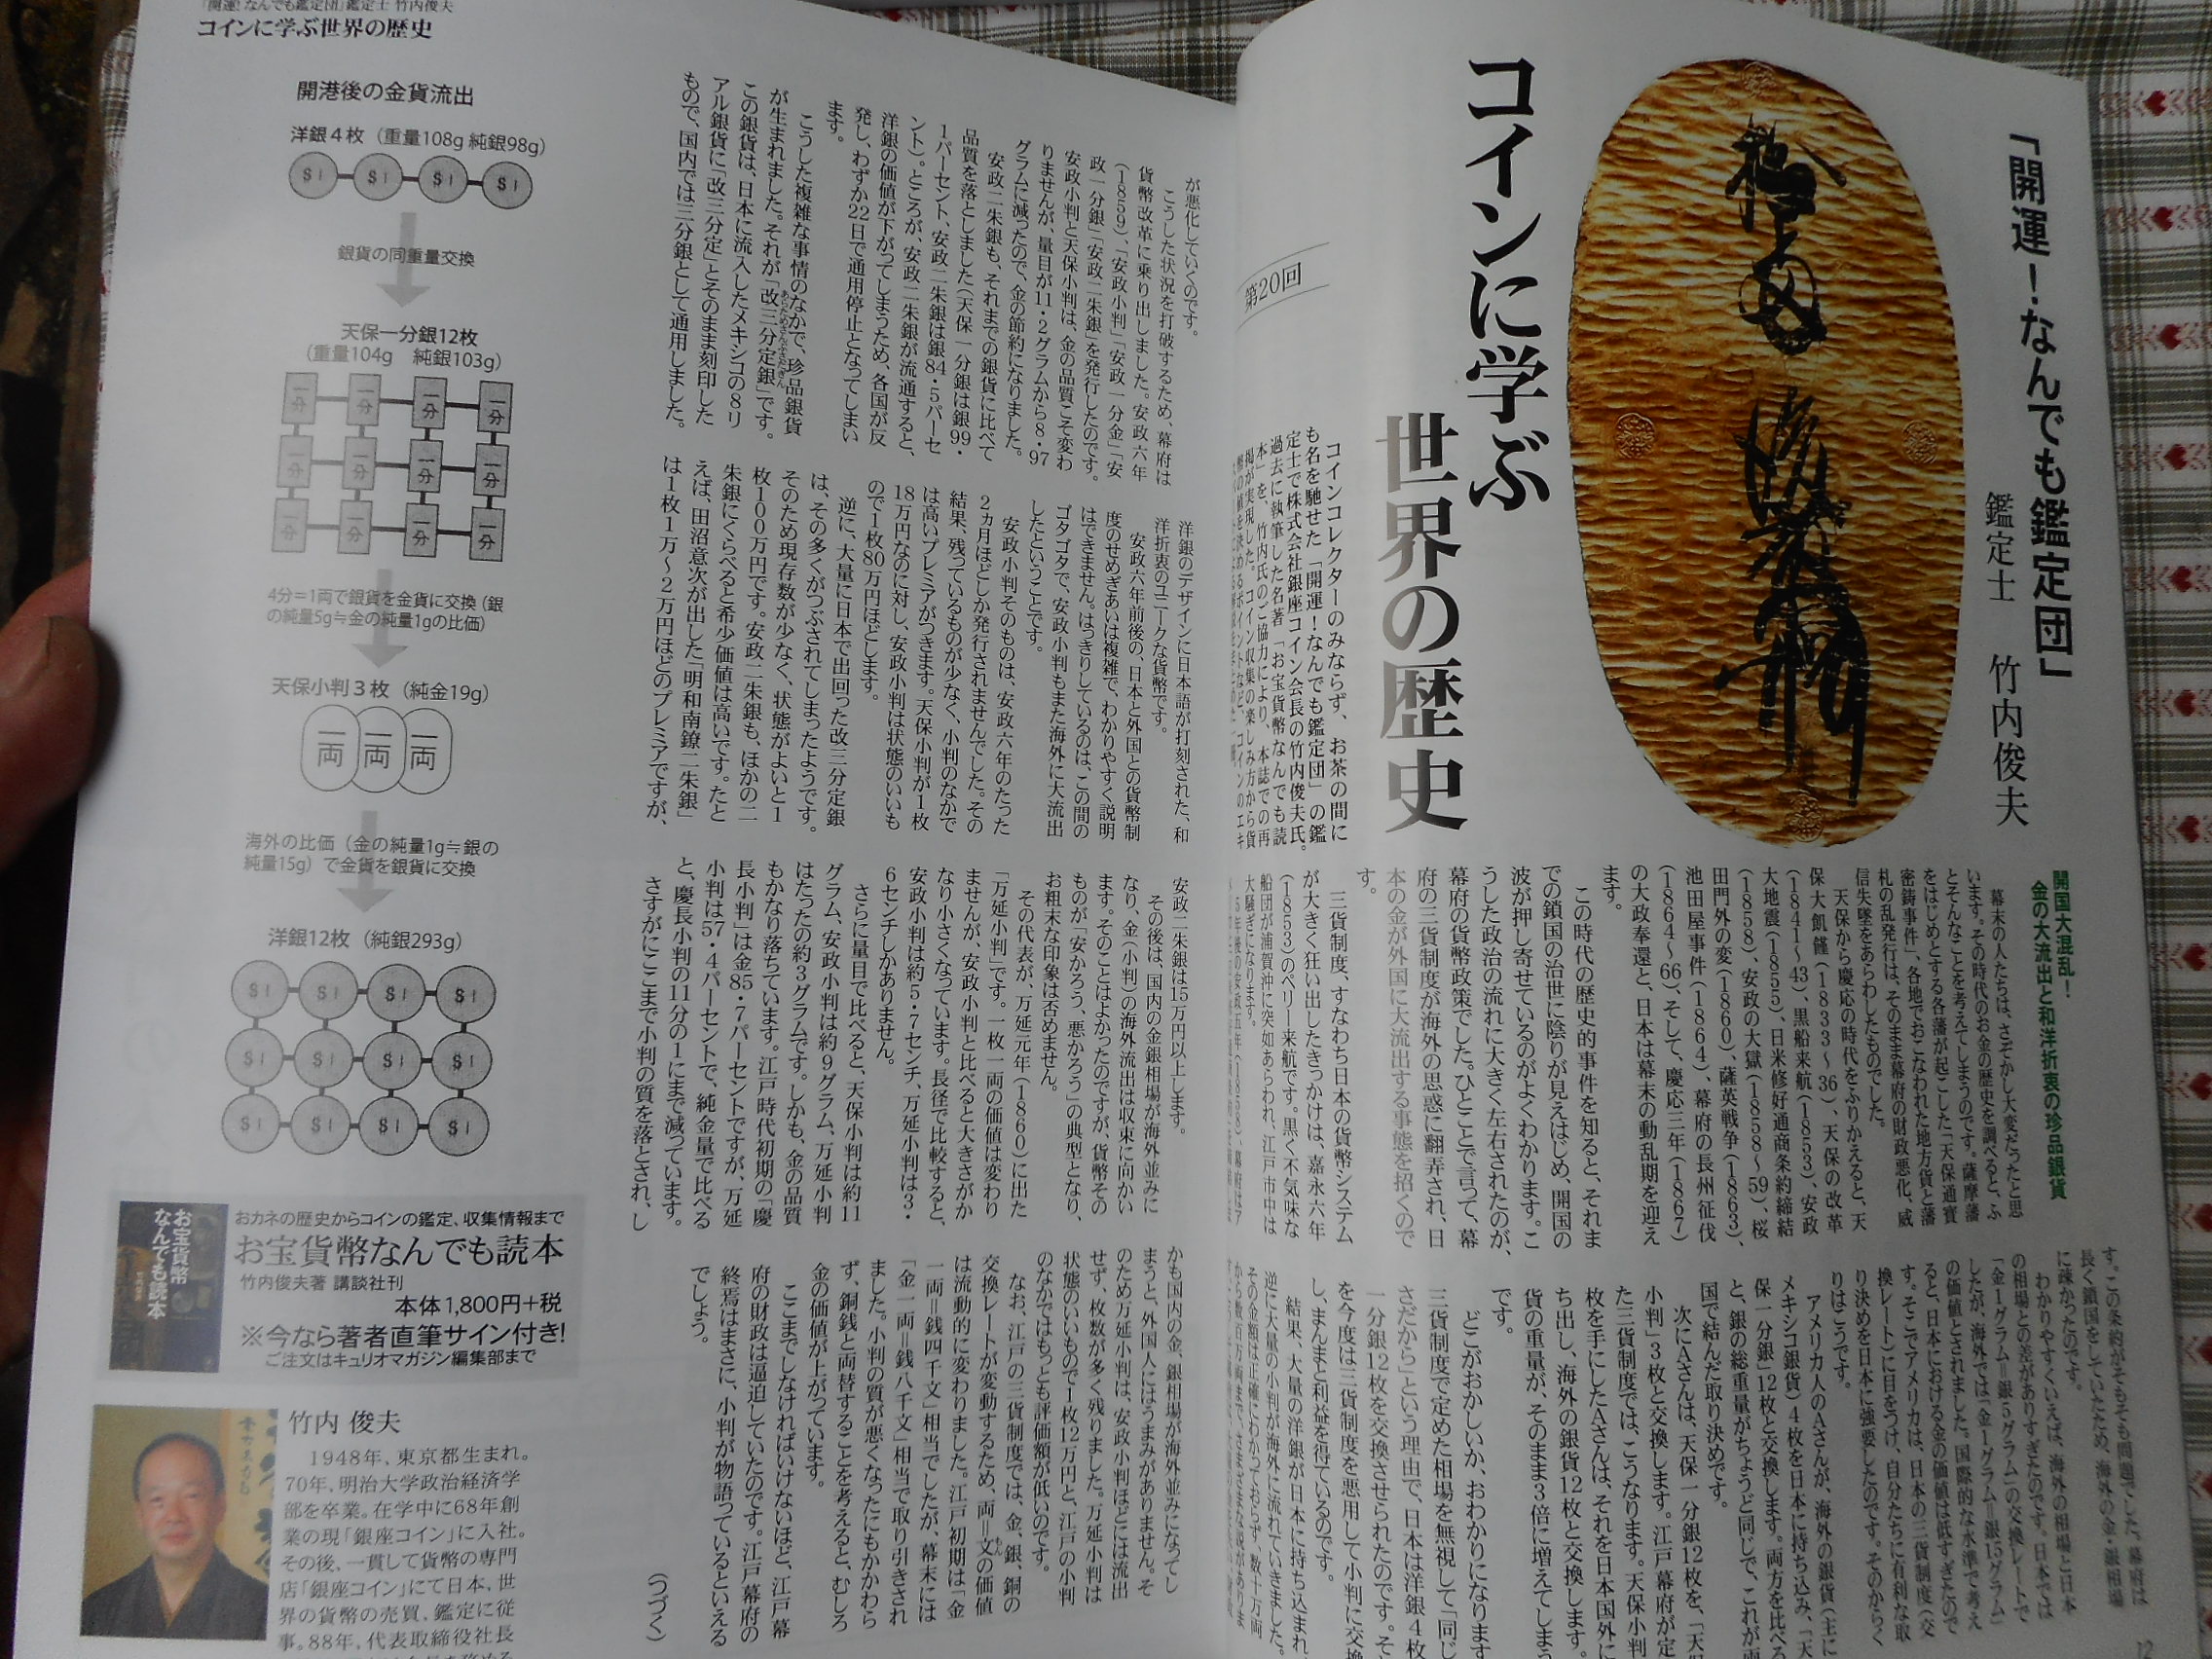 「開運！なんでも鑑定団」
鑑定士　竹内俊夫
コインに学ぶ
世界の歴史
第20回
コインコレクターのみならず、お茶の間に
も名を馳せた「開運！なんでも鑑定団」の鑑
定士で株式会社銀座コイン会長の竹内俊夫氏。
過去に執筆した名著「お宝貨幣なんでも読
本」を、竹内氏のご協力により、本誌での再
掲が実現した。コイン収集の楽しみ方から貨
開国大混乱！
金の大流出と和洋折衷の珍品銀貨
幕末の人たちは、さぞかし大変だったと思
います。その時代のお金の歴史を調べると、ふ
とそんなことを考えてしまうのです。薩摩藩
をはじめとする各藩が起こした「天保通寳
密鋳事件」、各地でおこなわれた地方貨と藩
札の乱発行は、そのまま幕府の財政悪化、威
信失墜をあらわしたものでした。
天保から慶応の時代をふりかえると、天
保大飢饉（1833〜36）、天保の改革
（1841〜43）、黒船来航（1853）、安政
大地震（1855）、日米修好通商条約締結
（1858）、安政の大獄（1858〜59）、桜
田門外の変（1860）、薩英戦争（1863）、
池田屋事件（1864）、幕府の長州征伐
（1864〜66）、そして、慶応三年（1867）
の大政奉還と、日本は幕末の動乱期を迎え
ます。
この時代の歴史的事件を知ると、それま
での鎖国の治世に陰りが見えはじめ、開国の
波が押し寄せているのがよくわかります。こ
うした政治の流れに大きく左右されたのが、
幕府の貨幣政策でした。ひとことで言って、幕
府の三貨制度が海外の思惑に翻弄され、日
本の金が外国に大流出する事態を招くので
す。
三貨制度、すなわち日本の貨幣システム
が大きく狂い出したきっかけは、嘉永六年
（1853）のペリー来航です。黒く不気味な
船団が浦賀沖に突如あらわれ、江戸市中は
大騒ぎになります。
す。この条約がそもそも問題でした。幕府は
長く鎖国をしていたため、海外の金・銀相場
に疎かったのです。
わかりやすくいえば、海外の相場と日本
の相場との差がありすぎたのです。日本では
「金1グラム＝銀5グラム」の交換レートで
したが、海外では「金1グラム＝銀15グラム」
の価値とされました。国際的な水準で考え
ると、日本における金の価値は低すぎたので
す。そこでアメリカは、日本の三貨制度（交
換レート）に目をつけ、自分たちに有利な取
り決めを日本に強要したのです。そのからく
りはこうです。
アメリカ人のAさんが、海外の銀貨（主に
メキシコ銀貨）4枚を日本に持ち込み、「天
保一分銀」12枚と交換します。両方を比べる
と、銀の総重量がちょうど同じで、これが両
国で結んだ取り決めです。
次にAさんは、天保一分銀12枚を、「天保
小判」3枚と交換します。江戸幕府が定
た三貨制度では、こうなります。天保小判
枚を手にしたAさんは、それを日本国外に
ち出し、海外の銀貨12枚と交換します。
貨の重量が、そのまま3倍に増えてしまう
です。
どこがおかしいか、おわかりになります
三貨制度で定めた相場を無視して「同じ
さだから」という理由で、日本は洋銀4枚
一分銀12枚を交換させられたのです。そ
を今度は三貨制度を悪用して小判に交換
し、まんまと利益を得ているのです。
結果、大量の洋銀が日本に持ち込まれ、
逆に大量の小判が海外に流れていきました。
その金額は正確にわかっておらず、数十万両
「開運！なんでも鑑定団」鑑定士 竹内俊夫
コインに学ぶ世界の歴史
が悪化していくのです。
こうした状況を打破するため、幕府は
貨幣改革に乗り出しました。安政六年
（1859）、「安政小判」「安政一分金」「安
政一分銀」「安政二朱銀」を発行したのです。
安政小判と天保小判は、金の品質こそ変わ
りませんが、量目が11・2グラムから8・97
グラムに減ったので、金の節約になりました。
安政二朱銀も、それまでの銀貨に比べて
品質を落としました（天保一分銀は銀99・
1パーセント、安政二朱銀は銀84・5パーセ
ント）。ところが、安政二朱銀が流通すると、
洋銀の価値が下がってしまうため、各国が反
発し、わずか22日で通用停止となってしまい
ます。
こうした複雑な事情のなかで、珍品銀貨
が生まれました。それが「改三分定銀」です。
あらためさんぶさだめぎん
この銀貨は、日本に流入したメキシコの8リ
アル銀貨に「改三分定」とそのまま刻印した
もので、国内では三分銀として通用しました。
洋銀のデザインに日本語が打刻された、和
洋折衷のユニークな貨幣です。
安政六年前後の、日本と外国との貨幣制
度のせめぎあいは複雑で、わかりやすく説明
はできません。はっきりしているのは、この間の
ゴタゴタで、安政小判もまた海外に大流出
したということです。
安政小判そのものは、安政六年のたった
2ヵ月ほどしか発行されませんでした。その
結果、残っているものが少なく、小判のなかで
は高いプレミアがつきます。天保小判が1枚
18万円なのに対し、安政小判は状態のいいも
ので1枚80万円ほどします。
逆に、大量に日本で出回った改三分定銀
は、その多くがつぶされてしまったようです。
そのため現存数が少なく、状態がよいと1
枚100万円です。安政二朱銀も、ほかの二
朱銀にくらべると希少価値は高いです。たと
えば、田沼意次が出した「明和南鐐二朱銀」
は1枚1万〜2万円ほどのプレミアですが、
安政二朱銀は15万円以上します。
その後は、国内の金銀相場が海外並みに
なり、金（小判）の海外流出は収束に向かい
ます。そのことはよかったのですが、貨幣その
ものが「安かろう、悪かろう」の典型となり、
お粗末な印象は否めません。
その代表が、万延元年（1860）に出た
「万延小判」です。一枚一両の価値は変わり
ませんが、安政小判と比べると大きさがか
なり小さくなっています。長径で比較すると、
安政小判は約5・7センチ、万延小判は3・
6センチしかありません。
さらに量目で比べると、天保小判は約11
グラム、安政小判は約9グラム、万延小判
はたったの約3グラムです。しかも、金の品質
もかなり落ちています。江戸時代初期の「慶
長小判」は金85・7パーセントですが、万延
小判は57・4パーセントで、純金量で比べる
と、慶長小判の11分の1にまで減っています。
さすがにここまで小判の質を落とされ、し
かも国内の金、銀相場が海外並みになってし
まうと、外国人にはうまみがありません。そ
のため万延小判は、安政小判ほどには流出
せず、枚数が多く残りました。万延小判は
状態のいいもので1枚12万円と、江戸の小判
のなかではもっとも評価額が低いのです。
なお、江戸の三貨制度では、金、銀、銅の
交換レートが変動するため、両＝文の価値
もん
は流動的に変わりました。江戸初期は「金
一両＝銭四千文」相当でしたが、幕末には
「金一両＝銭八千文」相当で取り引きされ
ました。小判の質が悪くなったにもかかわら
ず、銅銭と両替することを考えると、むしろ
金の価値が上がっています。
ここまでしなければいけないほど、江戸幕
府の財政は逼迫していたのです。江戸幕府の
終焉はまさに、小判が物語っているといえる
でしょう。
（つづく）
開港後の金貨流出
洋銀4枚（重量108g 純銀98g）
$1 $1 $1 $1
銀貨の同重量交換
天保一分銀12枚
（重量104g　純銀103g）
一分 一分 一分 一分
一分 一分 一分 一分
一分 一分 一分 一分
4分＝1両で銀貨を金貨に交換（銀
の純量5g≒金の純量1gの比価）
天保小判3枚（純金19g）
一両 一両 一両
海外の比価（金の純量1g≒銀の
純量15g）で金貨を銀貨に交換
洋銀12枚（純銀293g）
$1 $1 $1 $1
$1 $1 $1 $1
$1 $1 $1 $1
お宝貨幣
なんでも読本
おカネの歴史からコインの鑑定、収集情報まで
お宝貨幣なんでも読本
竹内俊夫著 講談社刊
本体1,800円＋税
※今なら著者直筆サイン付き！
ご注文はキュリオマガジン編集部まで
竹内 俊夫
1948年、東京都生まれ。
70年、明治大学政治経済学
部を卒業。在学中に68年創
業の現「銀座コイン」に入社。
その後、一貫して貨幣の専門
店「銀座コイン」にて日本、世
界の貨幣の売買、鑑定に従
事。88年、代表取締役社長